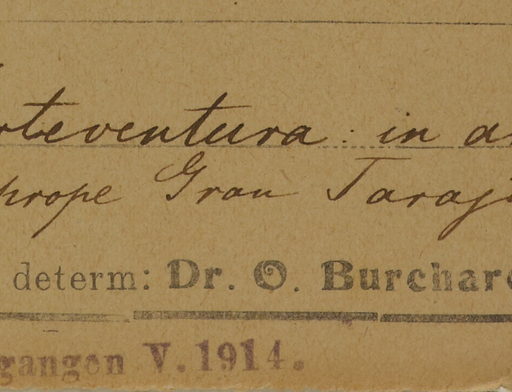 rteventura: in a
prope Gran Taraj
determ: Dr. O. Burchar
gangen V. 1914.